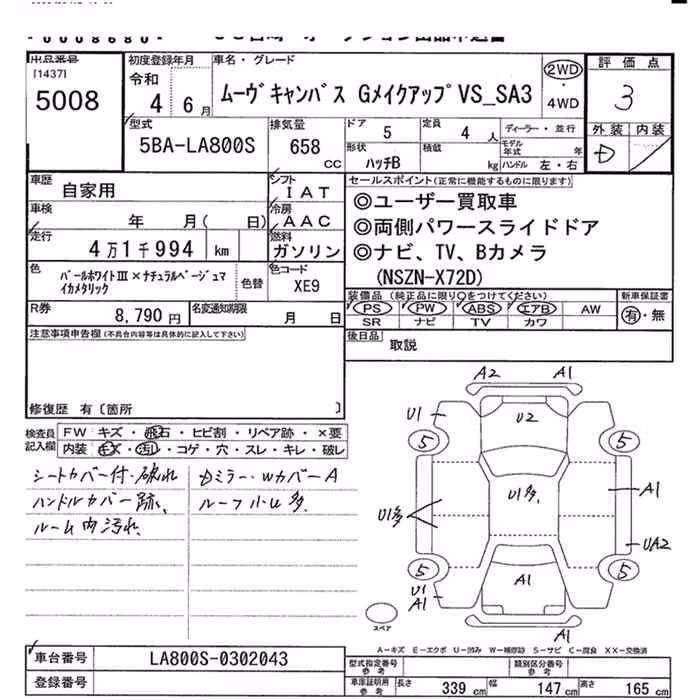 出品番号
[1437]
5008
初度登録年月
令和
4 6 月
車名・グレード
ムーヴキャンバス GメイクアップVS_SA3
2WD
・
4WD
評価点
3
外装 内装
D
型式
5BA-LA800S
排気量
658
CC
ドア 5
定員 4 人
ディーラー・並行
形状
ハッチB
積載
kg
モデル年式 年
ハンドル 左・右
車歴
自家用
シフト
IAT
車検
年 月( 日)
冷房
AAC
走行
4万1千994 km
燃料
ガソリン
色
パールホワイトⅢ×ナチュラルベージュマイカメタリック
色替
色コード
XE9
R券
8,790 円
名変通知期限
月 日
セールスポイント(正常に機能するものに限ります)
◎ユーザー買取車
◎両側パワースライドドア
◎ナビ、TV、Bカメラ
(NSZN-X72D)
装備品(純正品に限り○をつけてください)
PS PW ABS エアB AW
SR ナビ TV カワ
新車保証書
有・無
後日品
取説
注意事項申告欄(不具合内容等は具体的に記入して下さい)
修復歴 有〔箇所 〕
検査員記入欄
FW キズ・飛石・ヒビ割・リペア跡・×要
内装 キズ・汚れ・コゲ・穴・スレ・キレ・破レ
シートカバー付・破れ
ハンドルカバー跡、
ルーム内汚れ、
Dミラー・WカバーA
ルーフ小U多
A2 A1
U1
U2
5 5
U1多.
A1
U1多
UA2
5 5
A1
U1
A1
A1
スペア
A-キズ E-エクボ U-凹み W-補修跡 S-サビ C-腐食 XX-交換済
車台番号
LA800S-0302043
登録番号
型式指定番号
参考
類別区分番号
参考
車庫証明用
参考
長さ 339 cm
幅 147 cm
高さ 165 cm